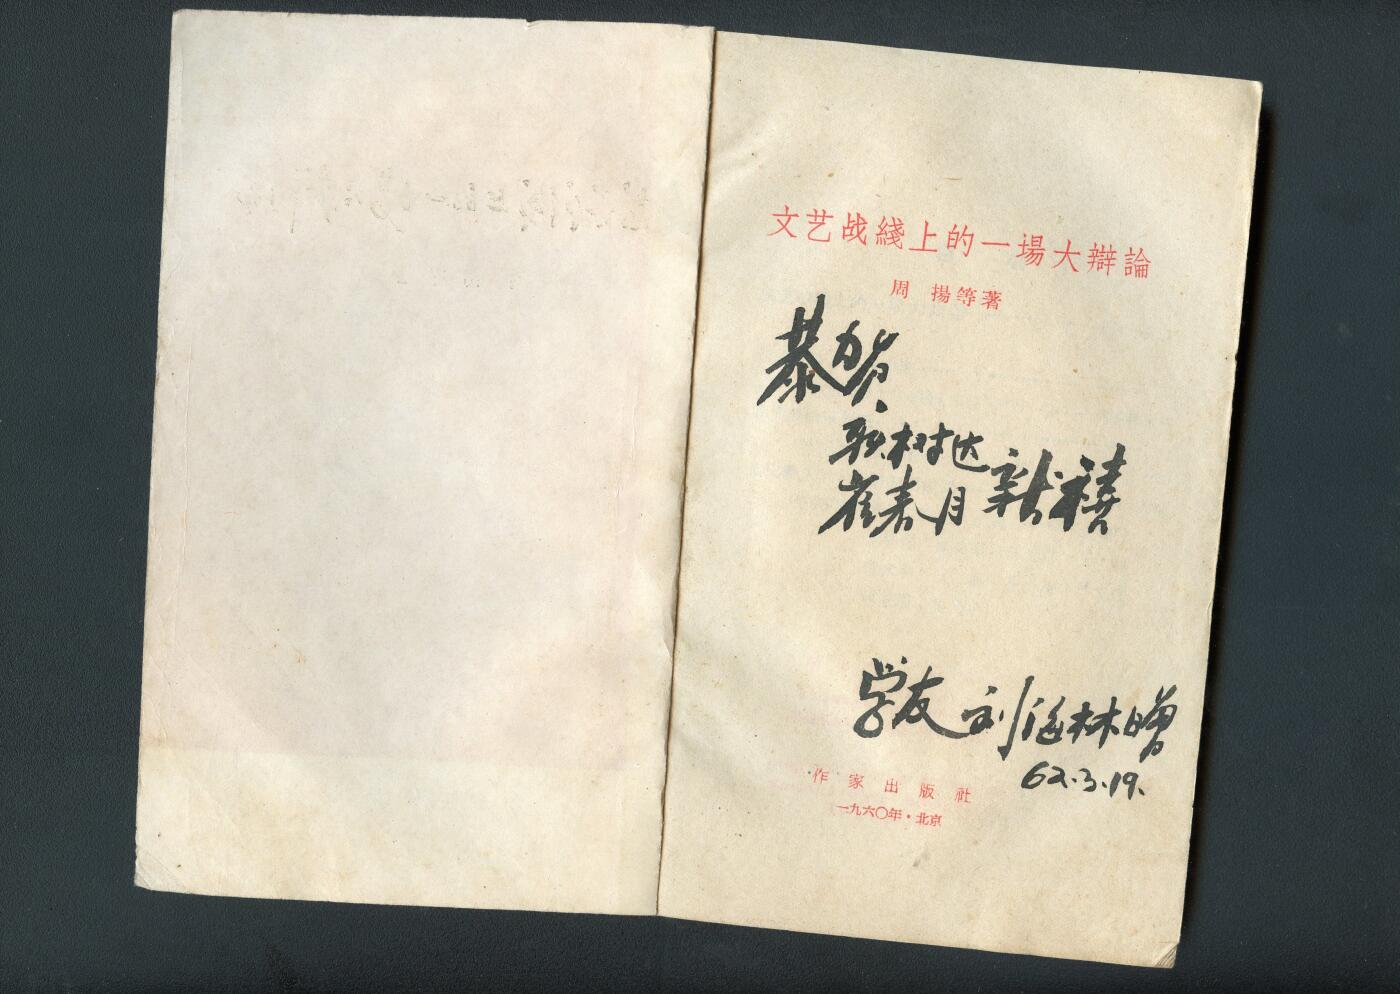 文艺战綫上的一場大辯論
周 揚等著
恭贺
耿树达
崔春月 新禧
学友 刘海林赠
62.3.19.
作家出版社
一九六〇年·北京